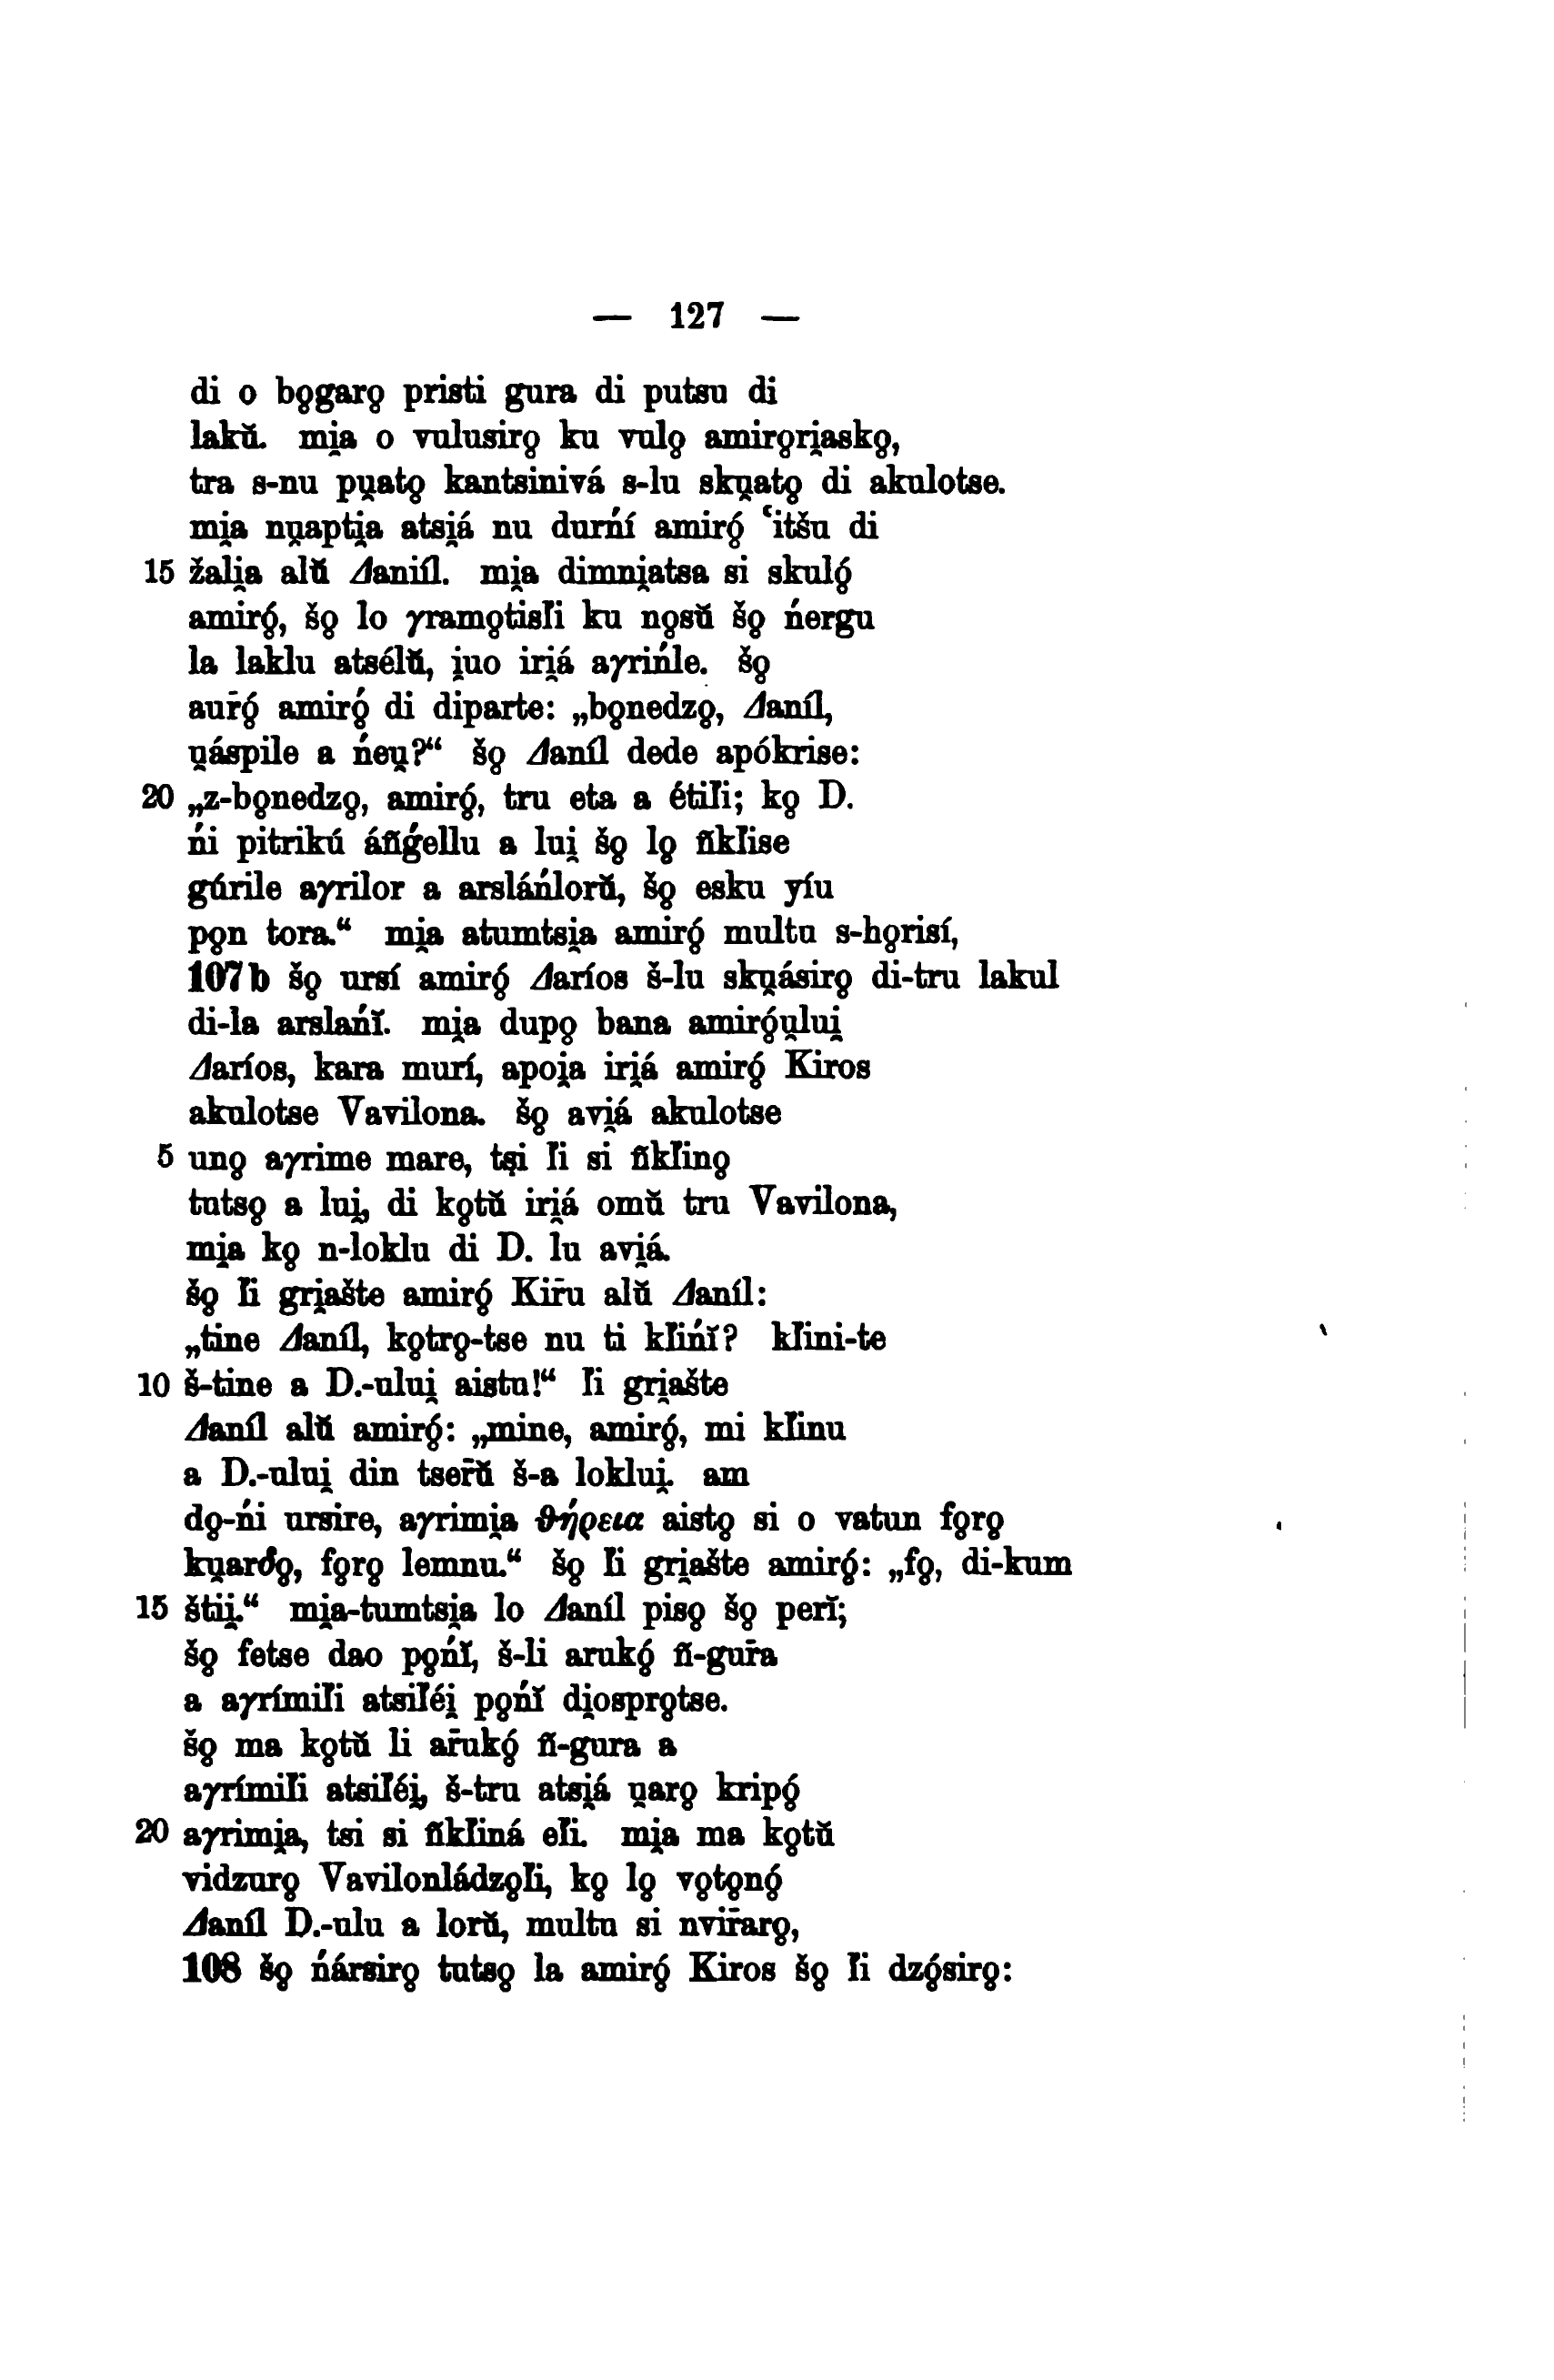 — 127 —
di o bo̥garo̥ pristi gura di putsu di
lakŭ. mi̯a o vulusiro̥ ku vulo̥ amiro̥ri̯asko̥,
tra s-nu pu̯ato̥ kantsinivá s-lu sku̯ato̥ di akulotse.
mi̯a nu̯apti̯a atsi̯á nu durńí amiró̥ ʿitšu di
15 žali̯a alŭ Δaniíl. mi̯a dimni̯atsa si skuló̥
amiró̥, šo̥ lo γramo̥tisľi ku no̥sŭ šo̥ ńergu
la laklu atsélŭ, i̯uo iri̯á aγrińle. šo̥
aur̄ó̥ amiró̥ di diparte: „bo̥nedzo̥, Δaníl,
u̯áspile a ńeu̯?“ šo̥ Δaníl dede apókrise:
20 „z-bo̥nedzo̥, amiró̥, tru eta a étiľi; ko̥ D.
ńi pitrikú áñǵellu a lui̯ šo̥ lo̥ ñkľise
gúrile aγrilor a arsláńlorŭ, šo̥ esku yíu
po̥n tora.“ mi̯a atumtsi̯a amiró̥ multu s-ho̥risí,
107b šo̥ ursí amiró̥ Δaríos š-lu sku̯ásiro̥ di-tru lakul
di-la arslańĭ. mi̯a dupo̥ bana amiró̥u̯lui̯
Δaríos, kara murí, apoi̯a iri̯á amiró̥ Kiros
akulotse Vavilona. šo̥ avi̯á akulotse
5 uno̥ aγrime mare, tşi ľi si ñkľino̥
tutso̥ a lui̯, di ko̥tŭ iri̯á omŭ tru Vavilona,
mi̯a ko̥ n-loklu di D. lu avi̯á.
šo̥ ľi gri̯ašte amiró̥ Kir̄u alŭ Δaníl:
„tine Δaníl, ko̥tro̥-tse nu ti kľińĭ? kľini-te
10 š-tine a D.-ului̯ aistu!“ ľi gri̯ašte
Δaníl alŭ amiró̥: „mine, amiró̥, mi kľinu
a D.-ului̯ din tser̄ŭ š-a loklui̯. am
do̥-ńi ursire, aγrimi̯a θήρεια aisto̥ si o vatun fo̥ro̥
ku̯arδo̥, fo̥ro̥ lemnu.“ šo̥ ľi gri̯ašte amiró̥: „fo̥, di-kum
15 štii̯.“ mi̯a-tumtsi̯a lo Δaníl piso̥ šo̥ perĭ;
šo̥ fetse dao po̥ńĭ, š-li arukó̥ ñ-gur̄a
a aγrímiľi atsiľéi̯ po̥ńĭ di̯ospro̥tse.
šo̥ ma ko̥tŭ li ar̄ukó̥ ñ-gura a
aγrímiľi atsiľéi̯, š-tru atsi̯á u̯aro̥ kripó̥
20 aγrimi̯a, tsi si ñkľiná eľi. mi̯a ma ko̥tŭ
vidzuro̥ Vavilonládzo̥ľi, ko̥ lo̥ vo̥to̥nó̥
Δaníl D.-ulu a lorŭ, multu si nvir̄aro̥,
108 šo̥ ńársiro̥ tutso̥ la amiró̥ Kiros šo̥ ľi dzó̥siro̥: